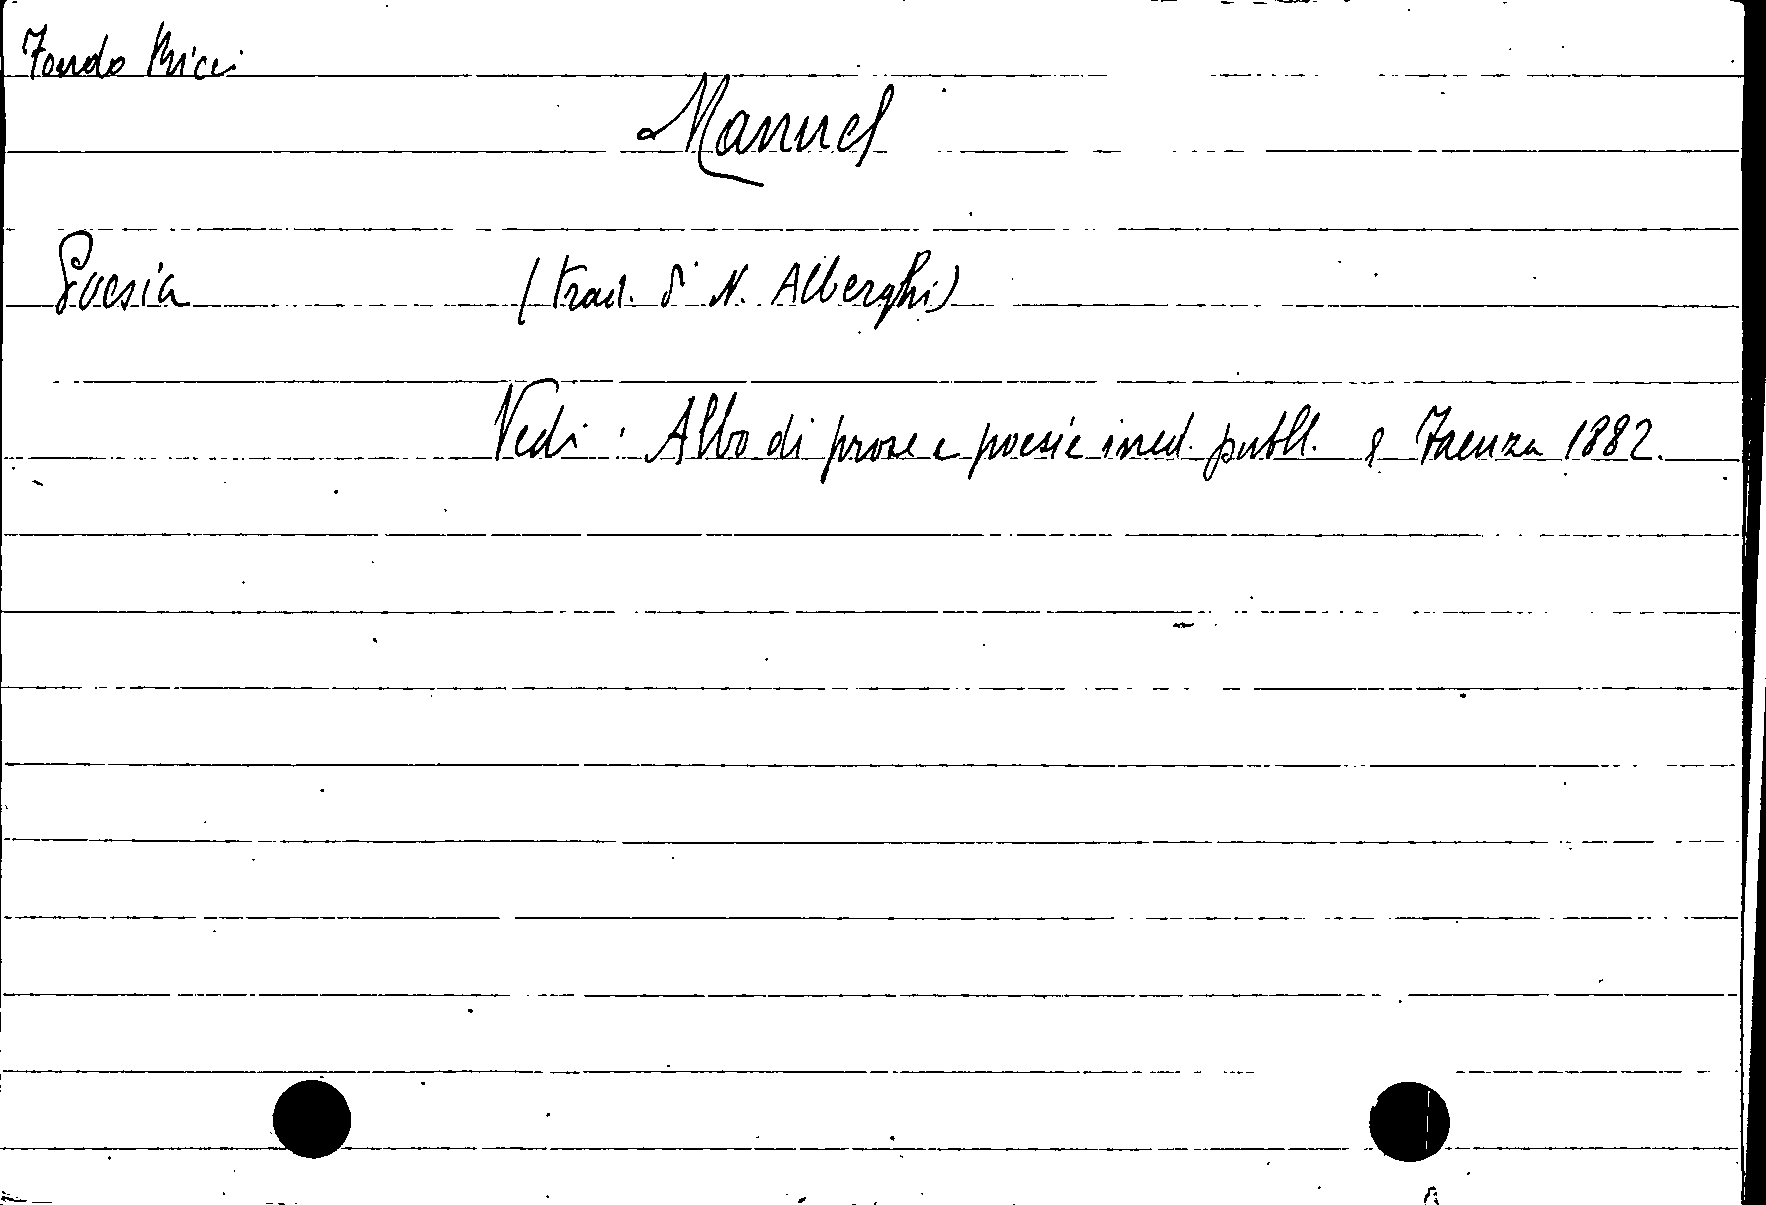 Fondo Ricci
Manuel
Poesia (trad. di N. Alberghi)
Vedi : Albo di prose e poesie ined. publl. Faenza 1882.